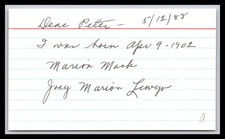 Dear Peter — 5/12/88
I was born Apr 9-1902
Marion Mack
Joey Marion Lewyn